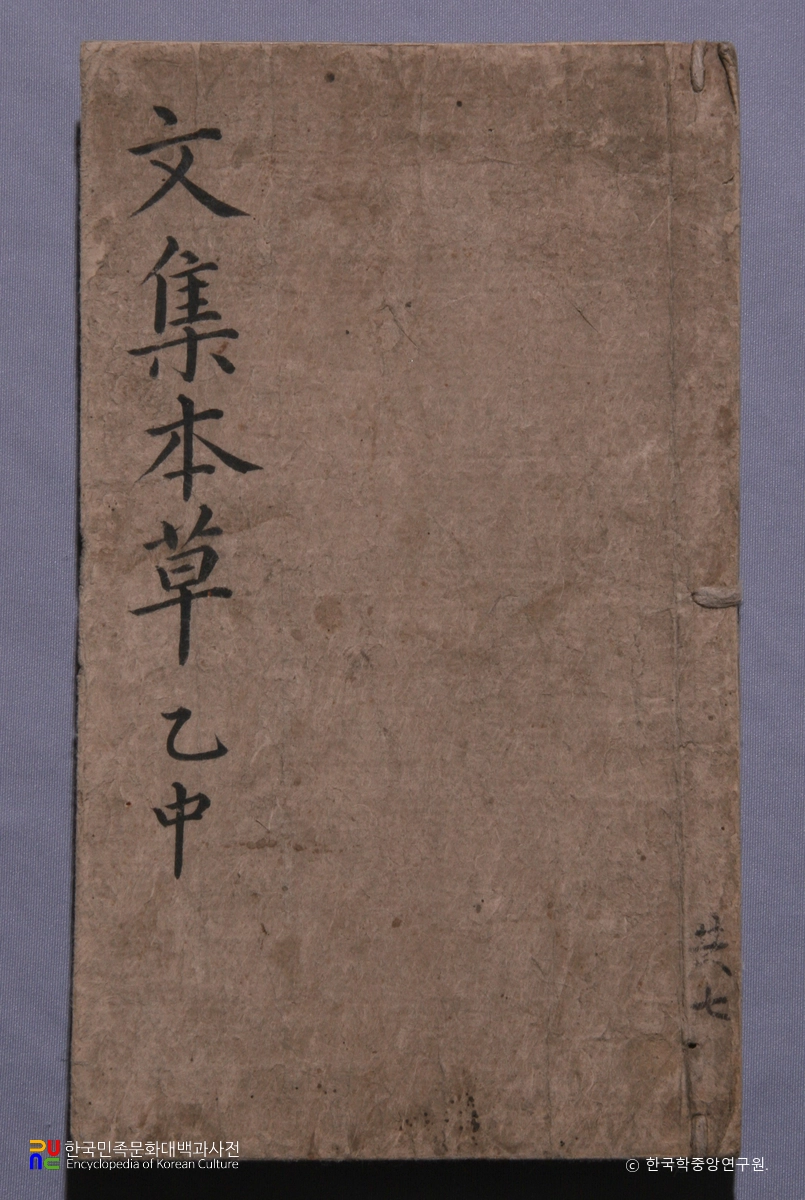 文集本草 乙中
共八
七
한국민족문화대백과사전
Encyclopedia of Korean Culture
ⓒ 한국학중앙연구원.